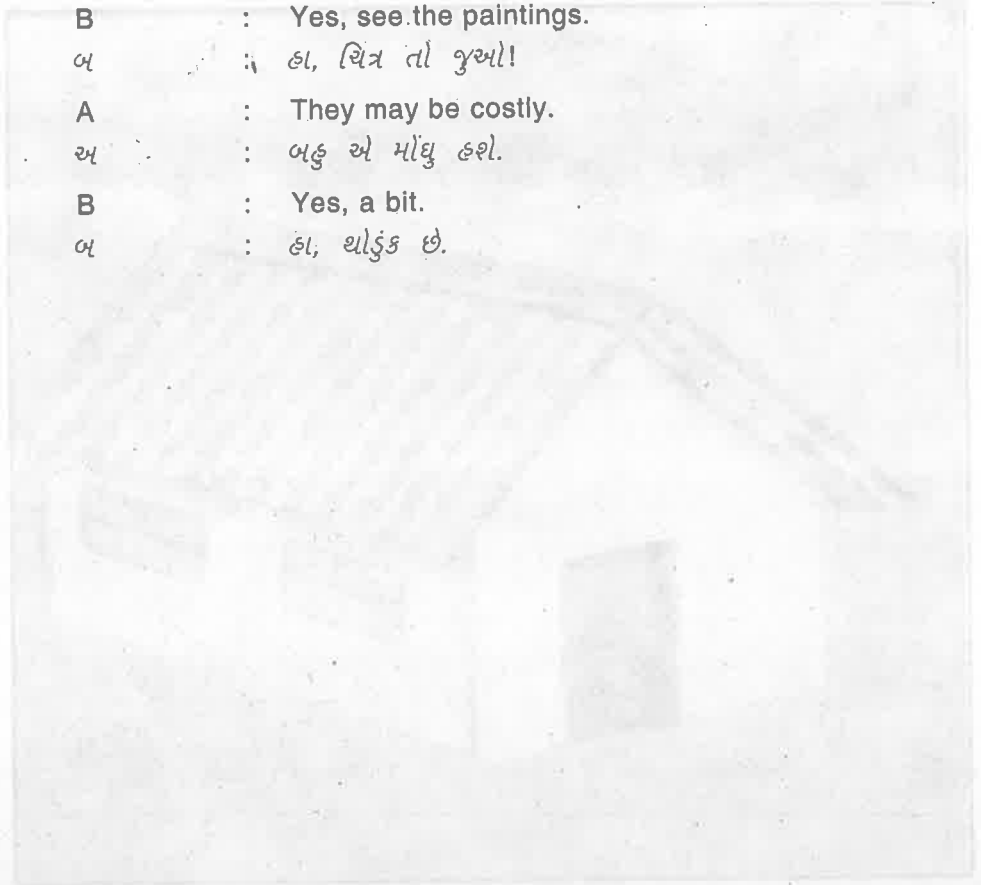 B : Yes, see the paintings.
બ : હા, ચિત્ર તો જુઓ!
A : They may be costly.
અ : બહુ એ મોંઘુ હશે.
B : Yes, a bit.
બ : હા, થોડુંક છે.